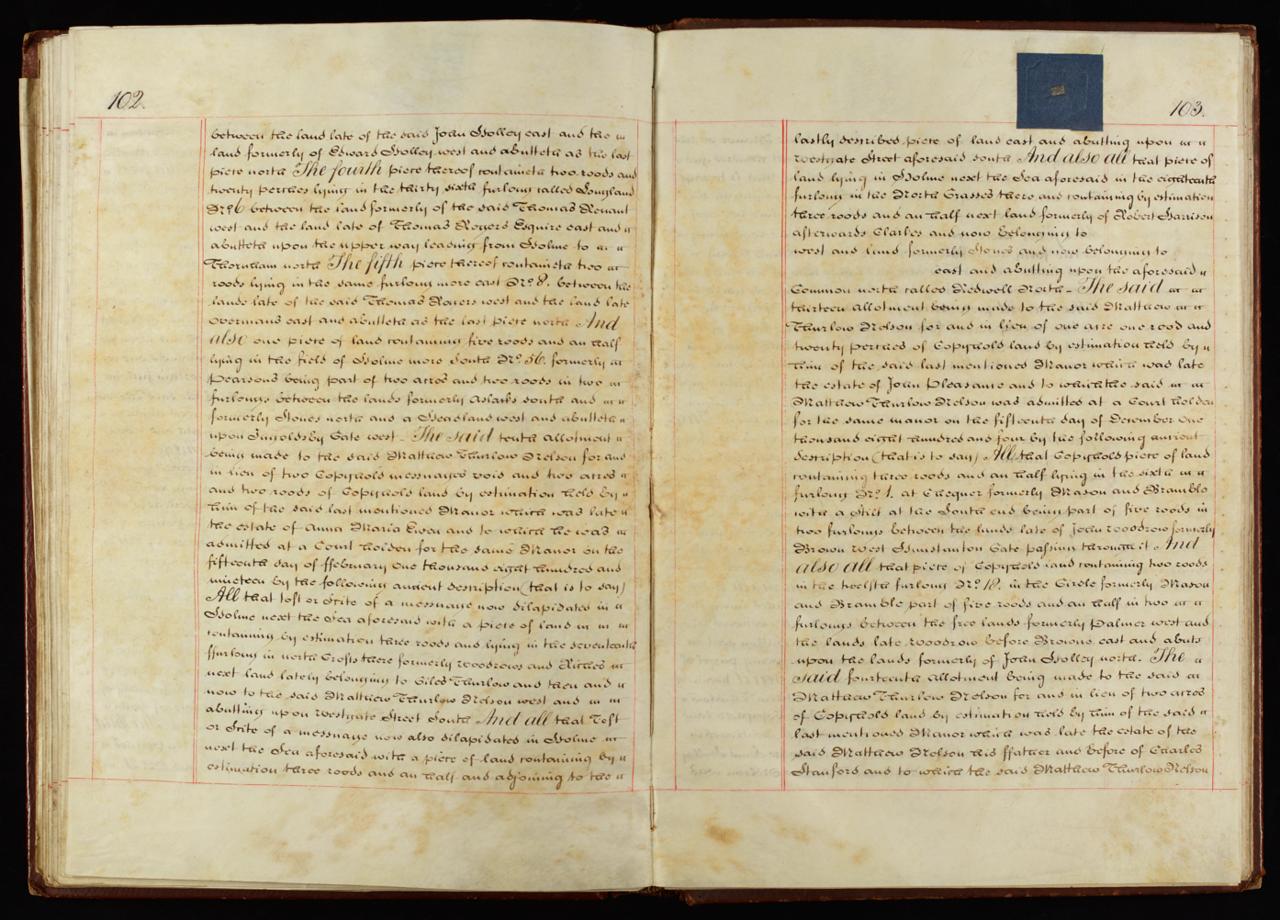 102.
between the land late of the said John Holley east and the
land formerly of Edward Holley west and abutteth as the last
piece north The fourth piece thereof containeth two roods and
twenty perches lying in the thirty sixth furlong called Longland
No. 6 between the land formerly of the said Thomas
west and the land late of Thomas Rogers Esquire east and
abutteth upon the upper way leading from Holme to
Thornham north The fifth piece thereof containeth two
roods lying in the same furlong more east No. 8. between the
lands late of the said Thomas Rogers west and the land late
Overmans east and abutteth as the last piece north And
also one piece of land containing five roods and an half
lying in the field of Holme more South No. 56. formerly
Pearsons being part of two acres and two roods in two
furlongs between the lands formerly Aslacks south and
formerly Stones north and a Headland west and abutteth
upon Ingoldsby Gate west - The said tenth allotment
being made to the said Matthew Thurlow Nelson for and
in lieu of two Copyhold messuages void and two acres
and two roods of Copyhold land by estimation held by
him of the said last mentioned Manor which was late
the estate of Anna Maria Ewen and to which he was
admitted at a Court holden for the same Manor on the
fifteenth day of ffebruary One thousand eight hundred and
nineteen by the following ancient description (that is to say)
All that toft or Scite of a messuage now dilapidated in
Holme next the Sea aforesaid with a piece of land in
containing by estimation three roods and lying in the seventeenth
ffurlong in north Crofts there formerly Woodrows and Riches
next land lately belonging to Giles Thurlow and then and
now to the said Matthew Thurlow Nelson west and
abutting upon Westgate Street South And all that Toft
or Scite of a messuage now also dilapidated in Holme
next the Sea aforesaid with a piece of land containing by
estimation three roods and an half and adjoining to the
103.
lastly described piece of land east and abutting upon
Westgate Street aforesaid south And also all that piece of
land lying in Holme next the Sea aforesaid in the eighteenth
furlong in the North Grasses there and containing by estimation
three roods and an half next land formerly of Robert Harrison
afterwards Charles and now belonging to
west and land formerly Stones and now belonging to
east and abutting upon the aforesaid
Common north called Redwell North - The said
thirteen allotment being made to the said Matthew
Thurlow Nelson for and in lieu of one acre one rood and
twenty perches of Copyhold land by estimation held by
him of the said last mentioned Manor which was late
the estate of John Pleasance and to which the said
Matthew Thurlow Nelson was admitted at a Court holden
for the same manor on the fifteenth day of December One
thousand eight hundred and four by the following ancient
description (that is to say) All that Copyhold piece of land
containing three roods and an half lying in the sixth
furlong No. 1. at Chequer formerly Mason and Bramble
with a Stilt at the South end being part of five roods in
two furlongs between the lands late of John Woodrow formerly
Brown West Hunstanton Gate passing through it And
also all that piece of Copyhold land containing two roods
in the twelfth furlong No. 18. in the Circle formerly Mason
and Bramble part of five roods and an half in two
furlongs between the free lands formerly Palmer west and
the lands late Woodrow before Browns east and abuts
upon the lands formerly of John Holley north. The
said fourteenth Allotment being made to the said
Matthew Thurlow Nelson for and in lieu of two acres
of Copyhold land by estimation held by him of the said
last mentioned Manor which was late the estate of the
said Matthew Nelson his ffather and before of Charles
Stanford and to which the said Matthew Thurlow Nelson